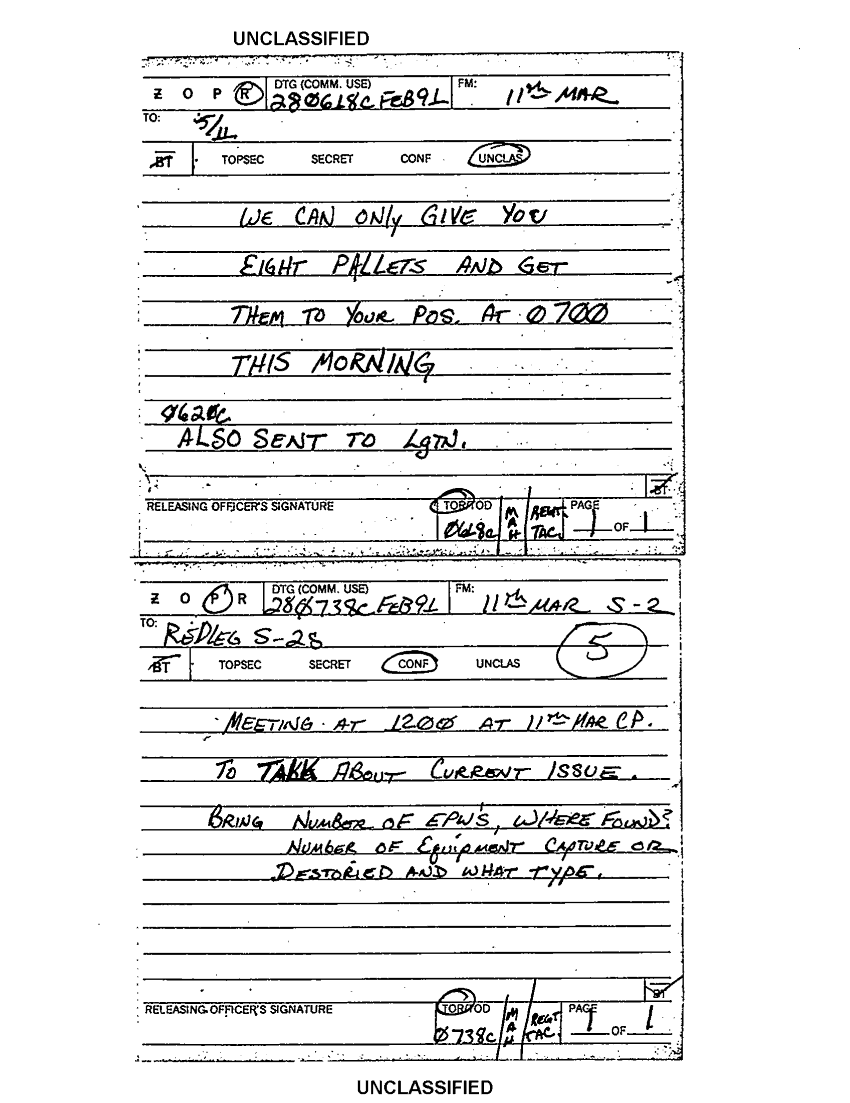 UNCLASSIFIED
Z O P R DTG (COMM. USE) 280618C FEB91 FM: 11th MAR
TO: 5/11
BT TOPSEC SECRET CONF UNCLAS
WE CAN ONLY GIVE YOU
EIGHT PALLETS AND GET
THEM TO YOUR POS. AT 0700
THIS MORNING
0620C
ALSO SENT TO LGTN.
BT
RELEASING OFFICER'S SIGNATURE TOR/TOD 0618C MAH REGT. TAC. PAGE 1 OF 1
Z O P R DTG (COMM. USE) 280738C FEB91 FM: 11th MAR S-2
TO: REDLEG S-28
5
BT TOPSEC SECRET CONF UNCLAS
MEETING AT 1200 AT 11th MAR CP.
TO TALK ABOUT CURRENT ISSUE.
BRING NUMBER OF EPW'S, WHERE FOUND?
NUMBER OF EQUIPMENT CAPTURE OR
DESTORIED AND WHAT TYPE.
BT
RELEASING OFFICER'S SIGNATURE TOR/TOD 0738C MAH REGT TAC. PAGE 1 OF 1
UNCLASSIFIED